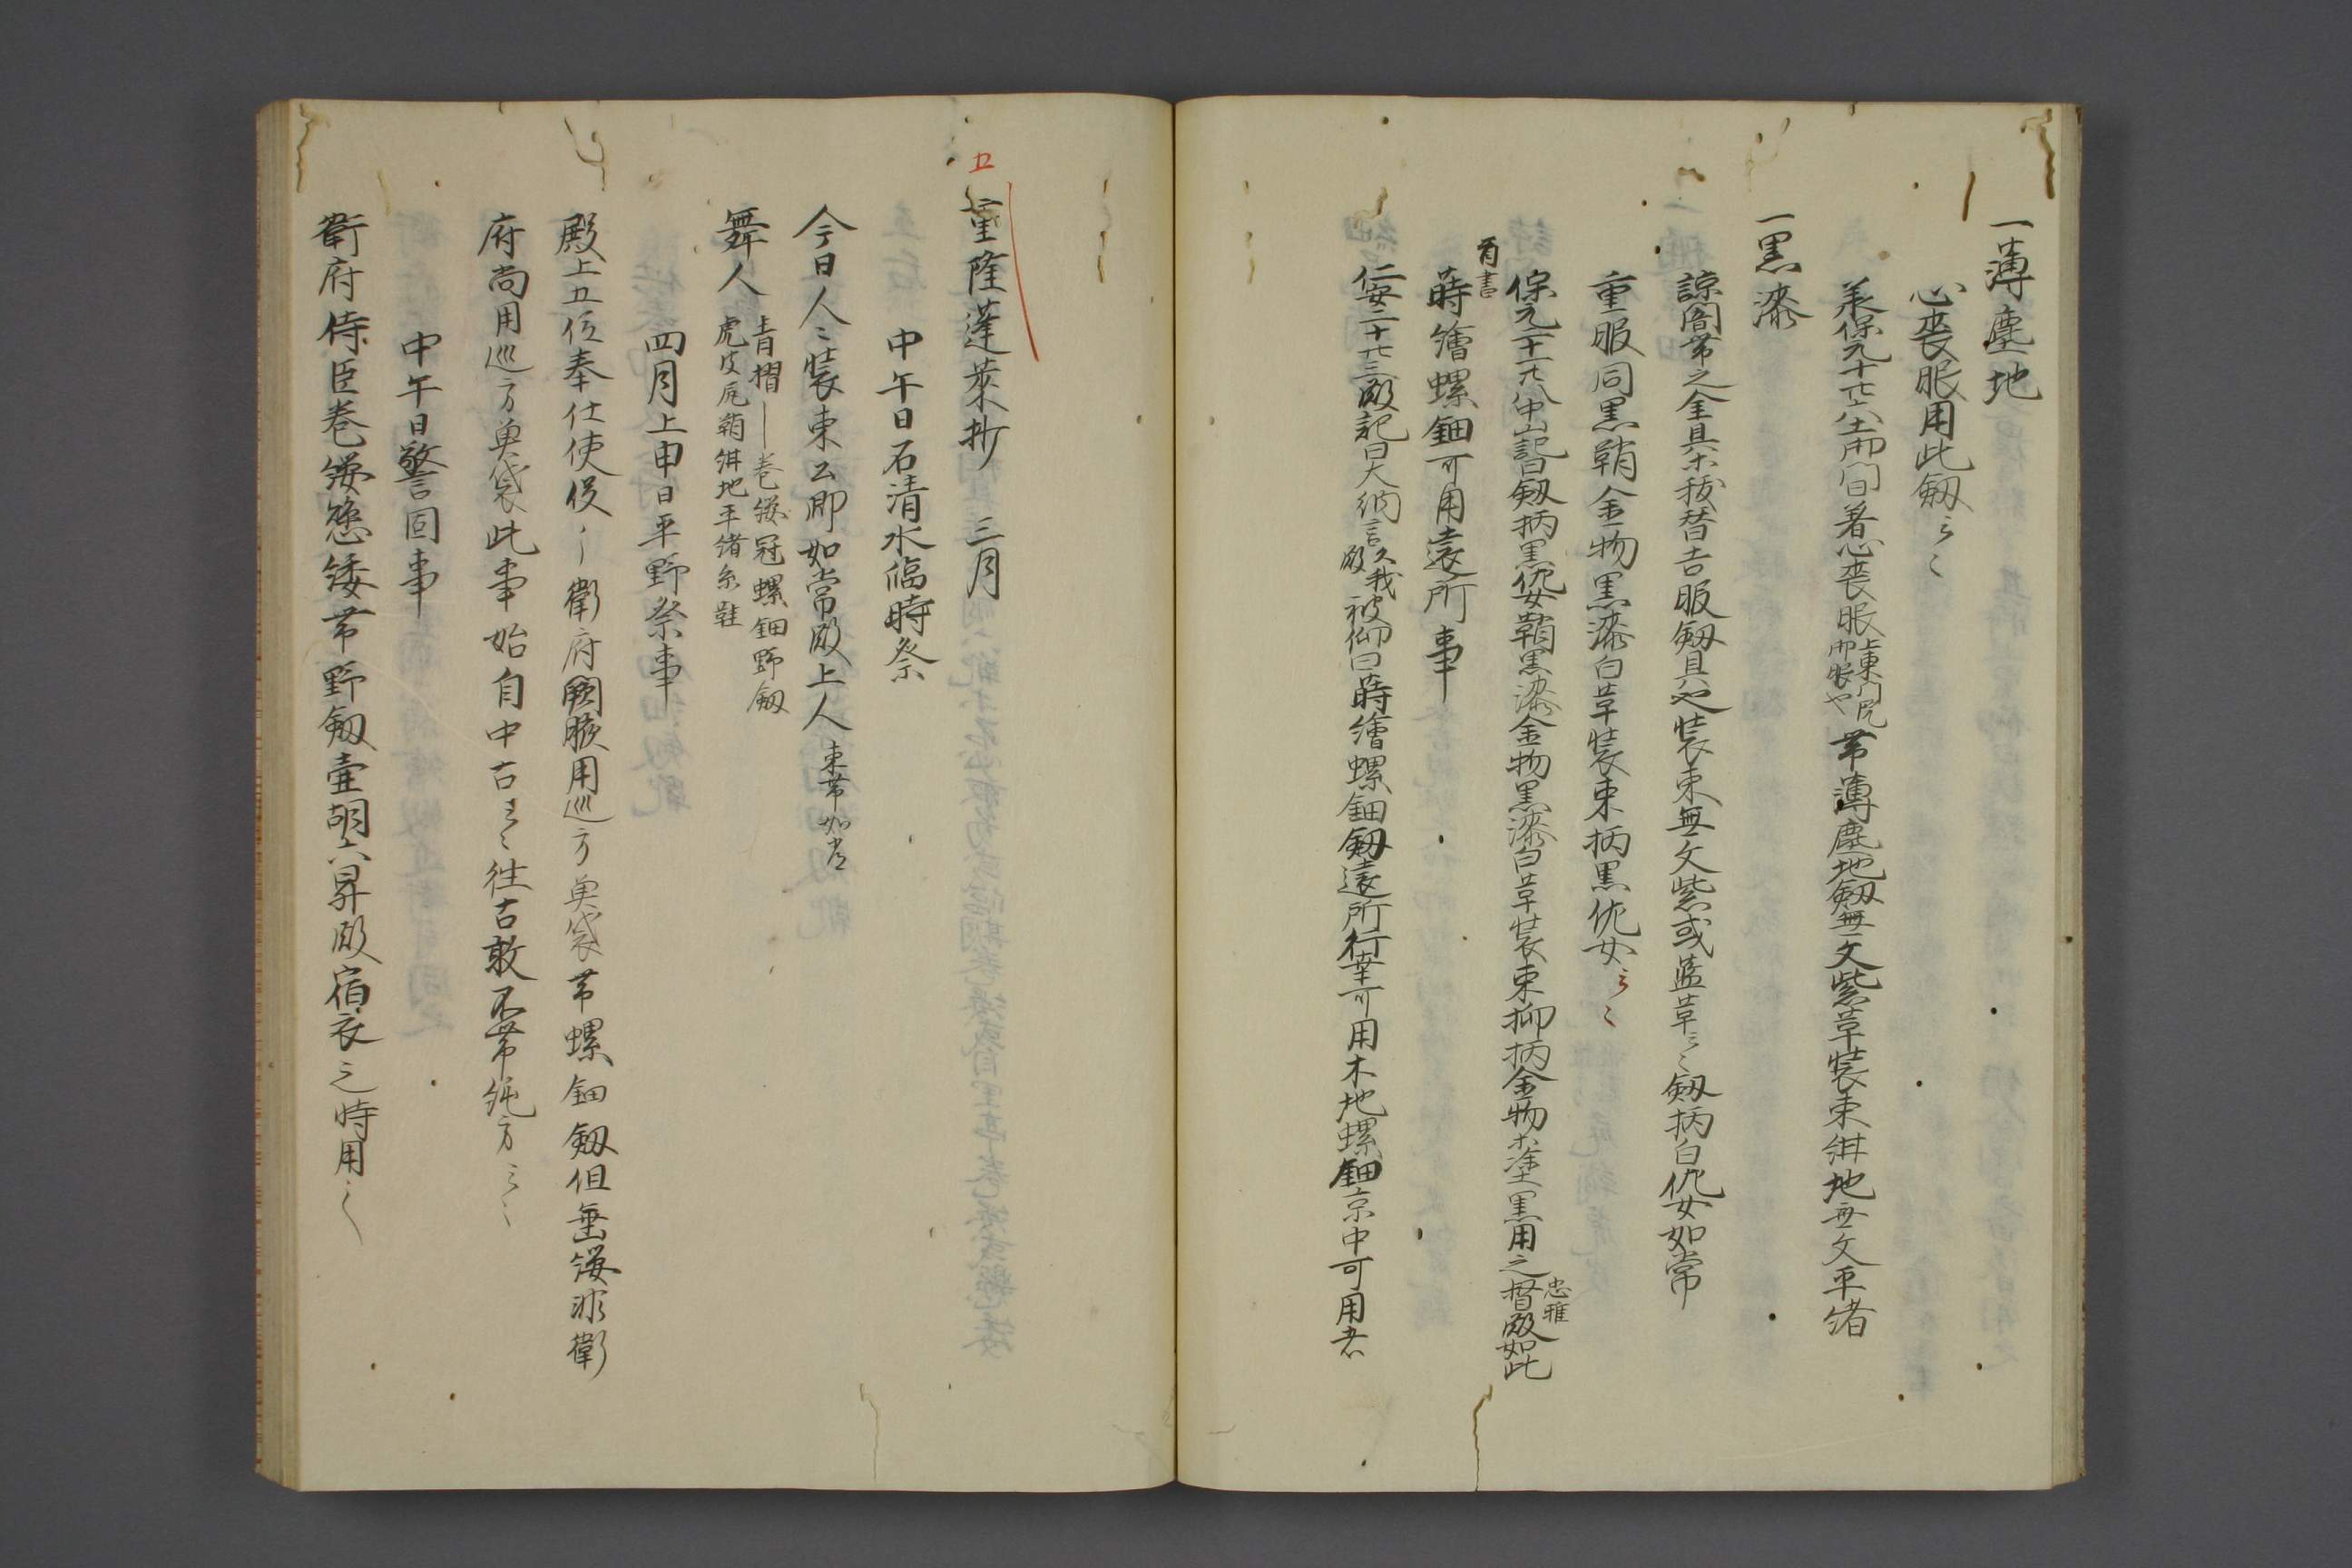 一薄塵地
心喪服用此劔云々
美保元十廿六土御門曰着心喪服
帯薄塵地劔無文紫革装束紺地無文平緒
一黒漆
諒闇帯之金具等抜替吉服劔具也装束無文紫或藍革云々劔柄白鮫如常
重服同黒鞘金物黒漆白革装束柄黒鮫云々
保元二十一廿八中山記曰劔柄黒鮫鞘黒漆金物黒漆白革装束柳柄金物等塗黒用之督殿如此
忠雅
首書
蒔繪螺鈿可用遠所事
仁安二十廿三殿記曰大納言久我殿被仰曰蒔繪螺鈿劔遠所行幸可用木地螺鈿京中可用者
五
重隆蓬莱抄 三月
中午日石清水臨時祭
今日人々装束公卿如常殿上人束帯如常
舞人 青摺―巻纓冠螺鈿野劔
虎皮尻鞘紺地平緒糸鞋
四月上申日平野祭事
殿上五位奉仕使役〻― 衛府闕腋用巡方魚袋帯螺鈿劔但垂纓非衛
府尚用巡方魚袋此事始自中古云々往古敢不帯純方云々
中午日警固事
衛府侍臣巻纓懸緌帯野劔壷胡六昇殿宿衣之時用之